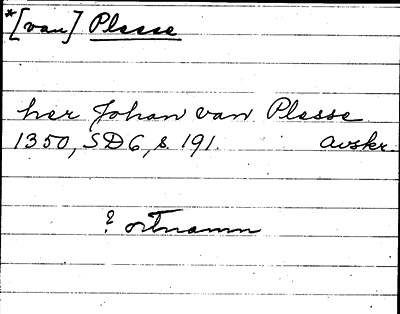 *[van] Plesse
her Johan van Plesse
1350, SD6, s. 191. avskr.
? ortnamn